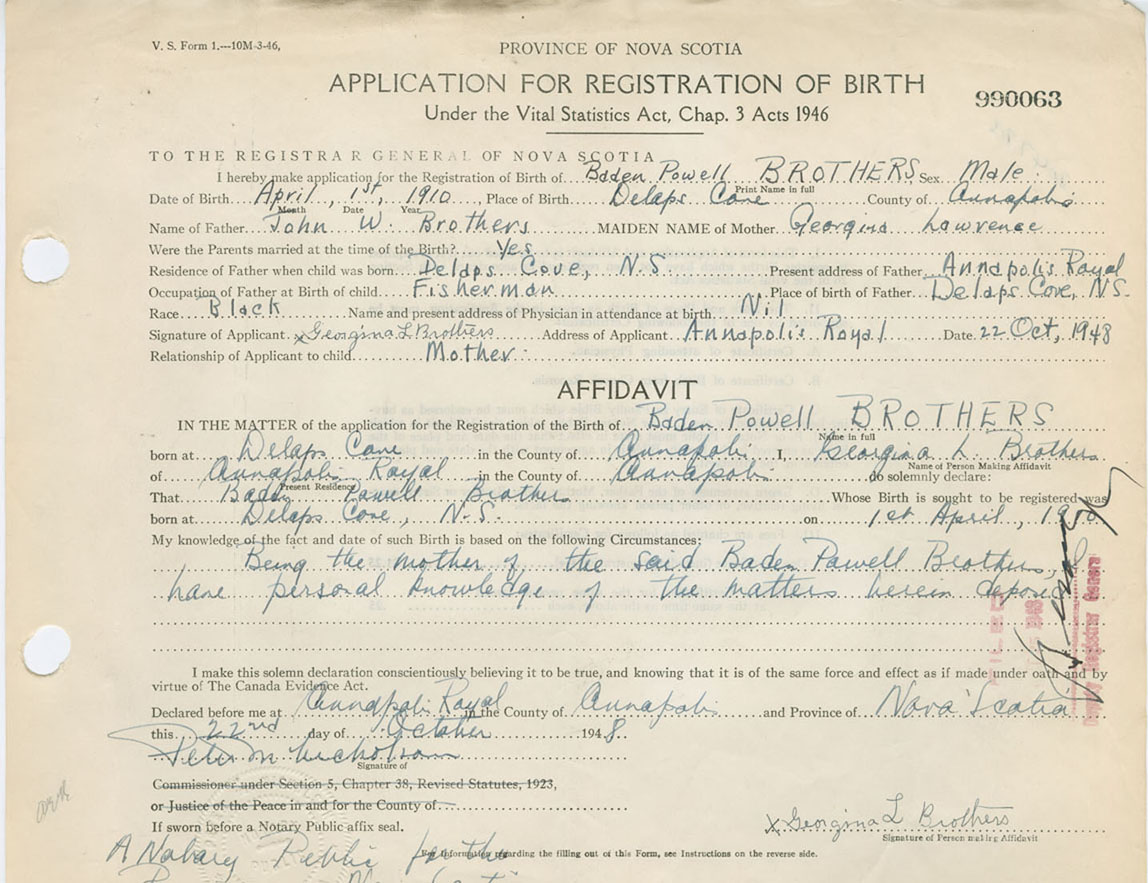 V. S. Form 1.---10M-3-46,
PROVINCE OF NOVA SCOTIA
APPLICATION FOR REGISTRATION OF BIRTH
990063
Under the Vital Statistics Act, Chap. 3 Acts 1946
TO THE REGISTRAR GENERAL OF NOVA SCOTIA
I hereby make application for the Registration of Birth of Baden Powell BROTHERS Sex Male
Print Name in full
Date of Birth April, 1st, 1910, Place of Birth Delaps Cove County of Annapolis
Month Date Year
Name of Father John W. Brothers MAIDEN NAME of Mother Georgina Lawrence
Were the Parents married at the time of the Birth? Yes
Residence of Father when child was born Delaps Cove, N.S. Present address of Father Annapolis Royal
Occupation of Father at Birth of child Fisherman Place of birth of Father Delaps Cove, N.S.
Race Black Name and present address of Physician in attendance at birth Nil
Signature of Applicant x Georgina L Brothers Address of Applicant Annapolis Royal Date 22 Oct, 1948
Relationship of Applicant to child Mother
AFFIDAVIT
IN THE MATTER of the application for the Registration of the Birth of Baden Powell BROTHERS
Name in full
born at Delaps Cove in the County of Annapolis I, Georgina L. Brothers
Name of Person Making Affidavit
of Annapolis Royal in the County of Annapolis do solemnly declare:
Present Residence
That Baden Powell Brothers Whose Birth is sought to be registered was
born at Delaps Cove, N.S. on 1st April, 1910
My knowledge of the fact and date of such Birth is based on the following Circumstances:
Being the mother of the said Baden Powell Brothers, I
have personal knowledge of the matters herein deposed
I make this solemn declaration conscientiously believing it to be true, and knowing that it is of the same force and effect as if made under oath and by
virtue of The Canada Evidence Act.
Declared before me at Annapolis Royal in the County of Annapolis and Province of Nova Scotia
this 22nd day of October 1948
Peter M Nicholson
Signature of
Commissioner under Section 5, Chapter 38, Revised Statutes, 1923,
or Justice of the Peace in and for the County of
If sworn before a Notary Public affix seal.
x Georgina L Brothers
Signature of Person making Affidavit
A Notary Public for the
For information regarding the filling out of this Form, see Instructions on the reverse side.
Deputy Registrar General